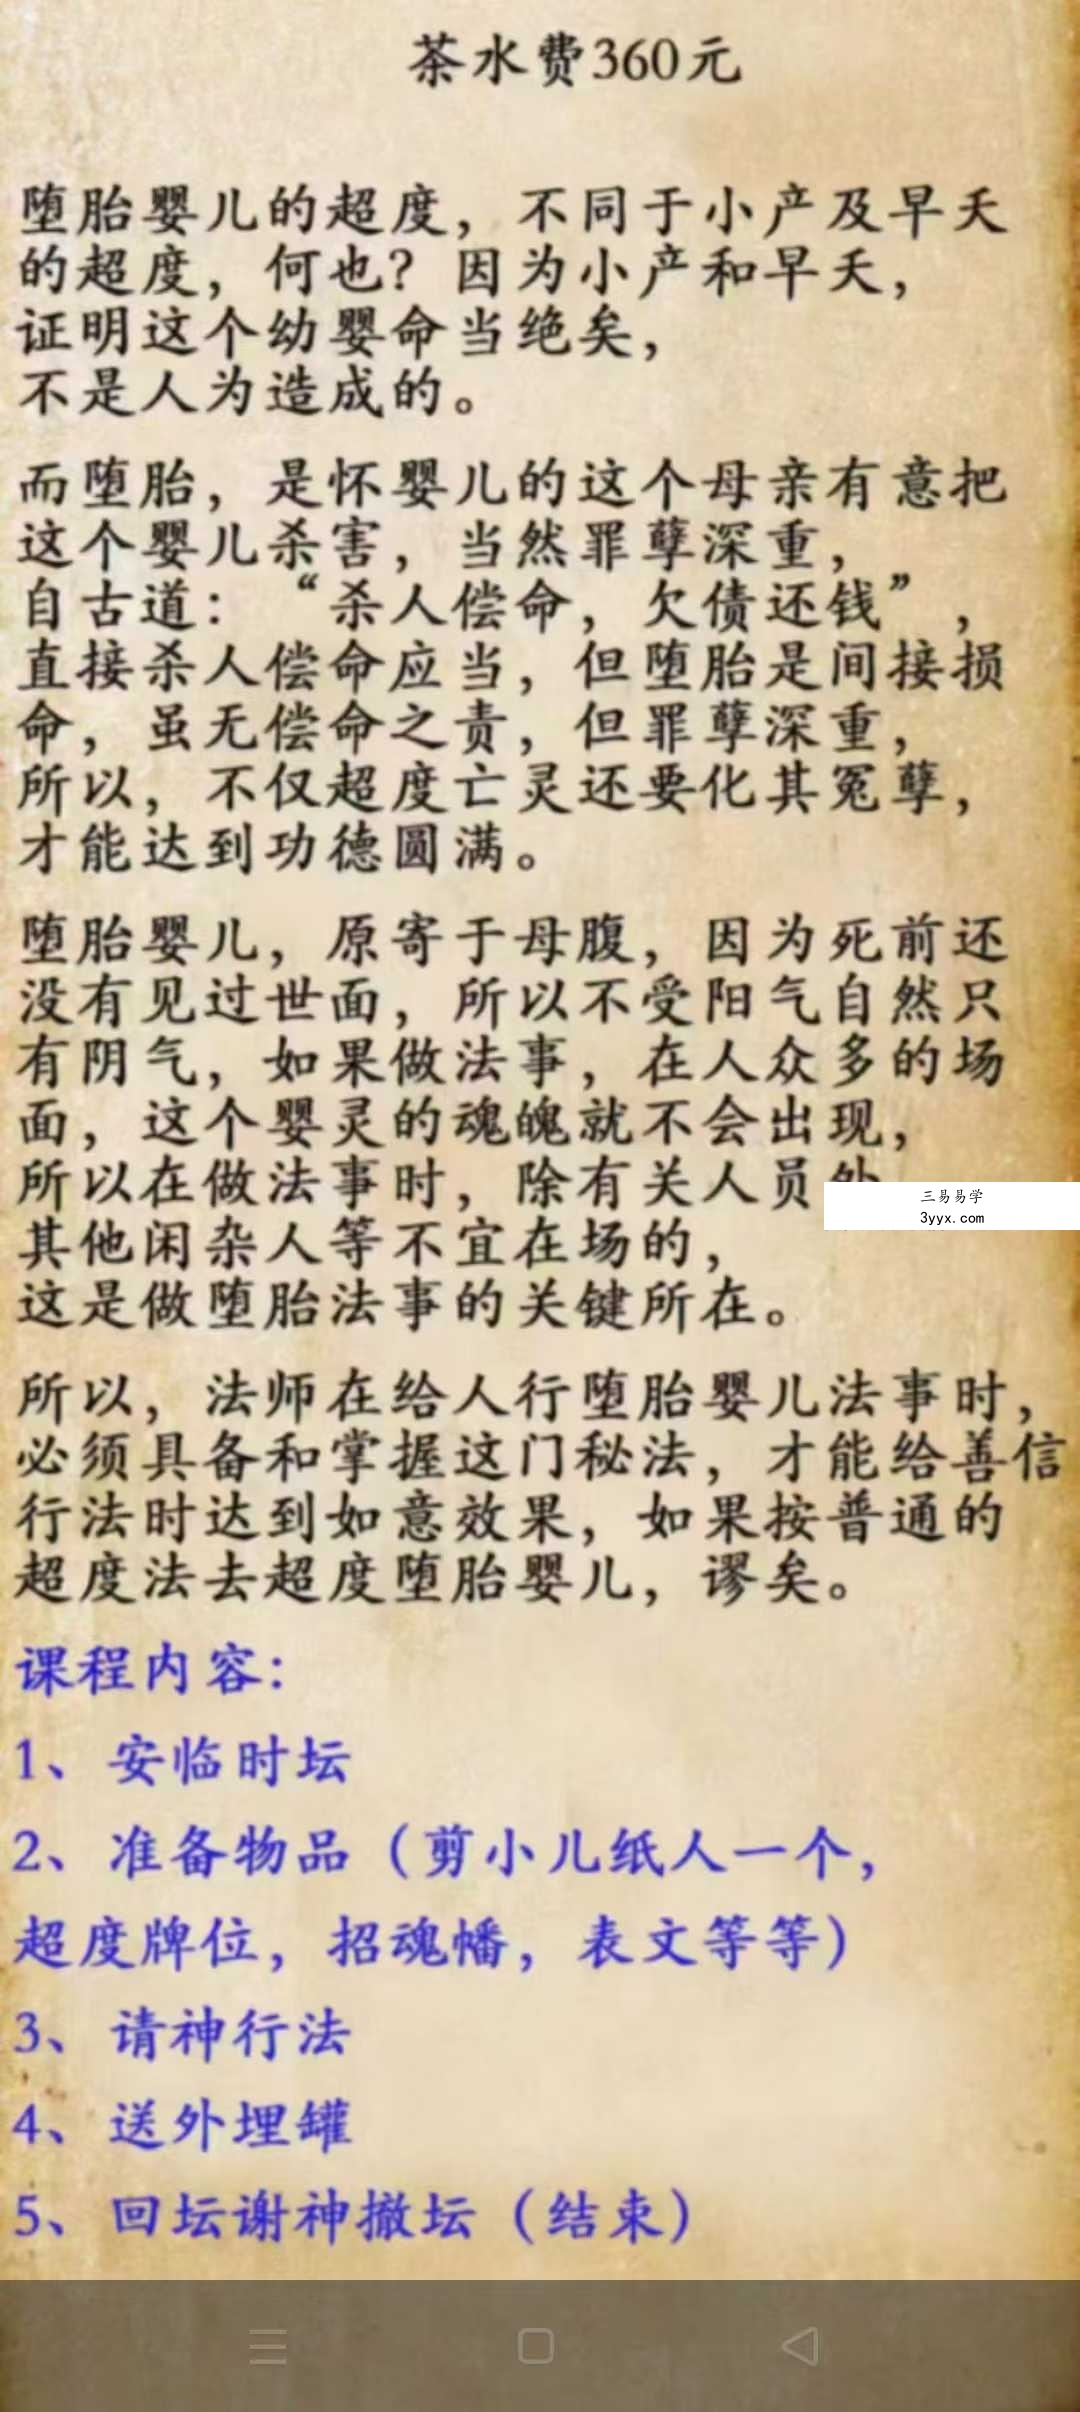 茶水费360元
堕胎婴儿的超度，不同于小产及早夭
的超度，何也？因为小产和早夭，
证明这个幼婴命当绝矣，
不是人为造成的。
而堕胎，是怀婴儿的这个母亲有意把
这个婴儿杀害，当然罪孽深重，
自古道：“杀人偿命，欠债还钱”，
直接杀人偿命应当，但堕胎是间接损
命，虽无偿命之责，但罪孽深重，
所以，不仅超度亡灵还要化其冤孽，
才能达到功德圆满。
堕胎婴儿，原寄于母腹，因为死前还
没有见过世面，所以不受阳气自然只
有阴气，如果做法事，在人众多的场
面，这个婴灵的魂魄就不会出现，
所以在做法事时，除有关人员外
三易易学
3yyx.com
其他闲杂人等不宜在场的，
这是做堕胎法事的关键所在。
所以，法师在给人行堕胎婴儿法事时，
必须具备和掌握这门秘法，才能给善信
行法时达到如意效果，如果按普通的
超度法去超度堕胎婴儿，谬矣。
课程内容：
1、安临时坛
2、准备物品（剪小儿纸人一个，
超度牌位，招魂幡，表文等等）
3、请神行法
4、送外埋罐
5、回坛谢神撤坛（结束）